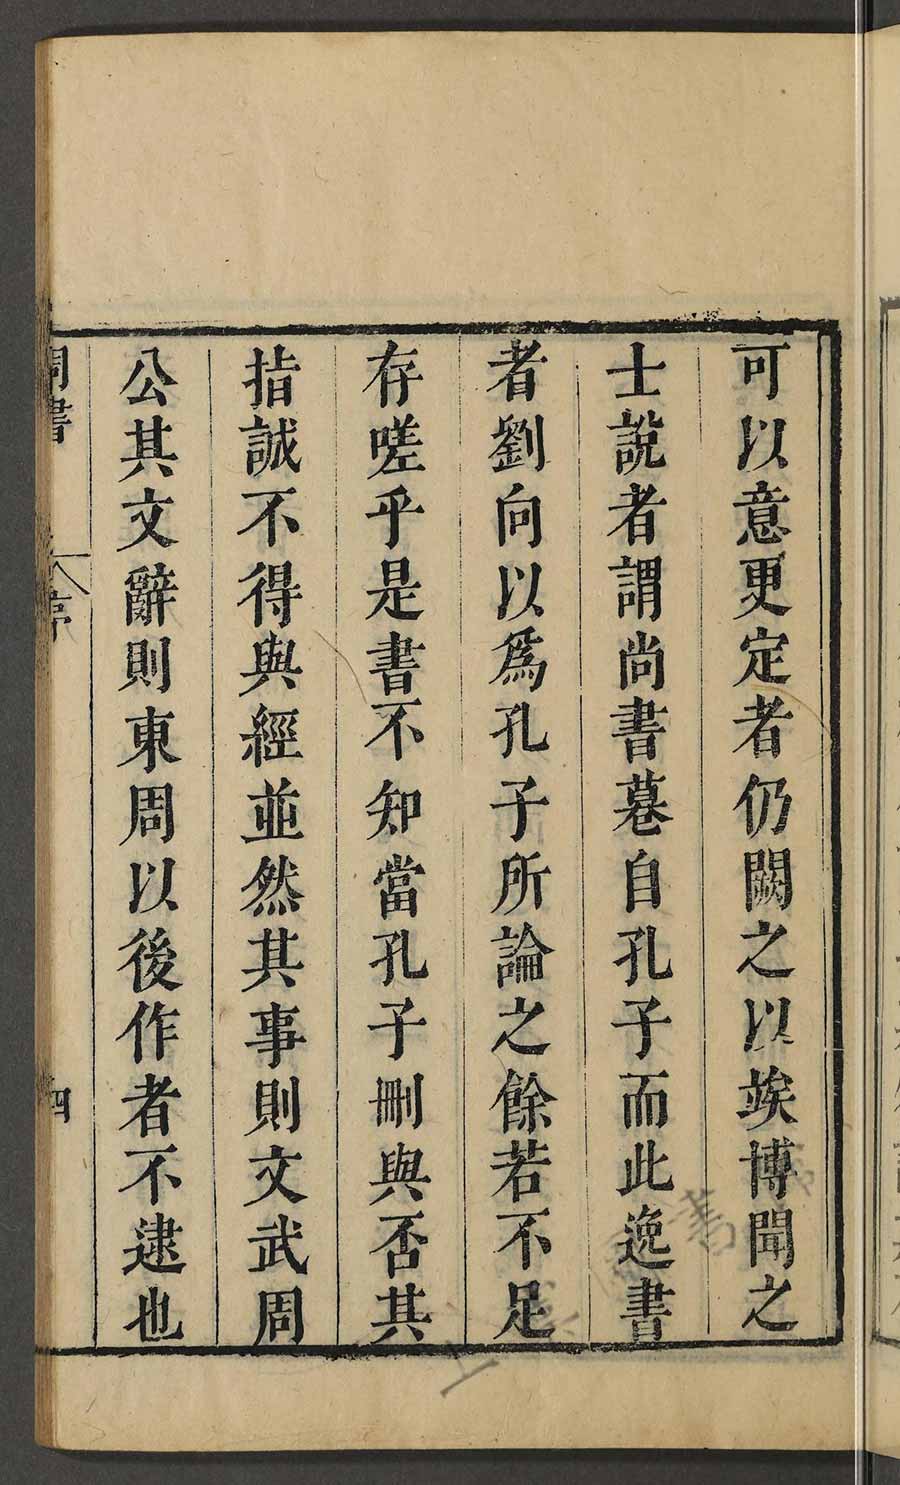 可以意更定者仍闕之以竢博聞之
士說者謂尚書墓自孔子而此逸書
者劉向以爲孔子所論之餘若不足
存嗟乎是書不知當孔子刪與否其
指誠不得與經並然其事則文武周
公其文辭則東周以後作者不逮也
周書
序
四